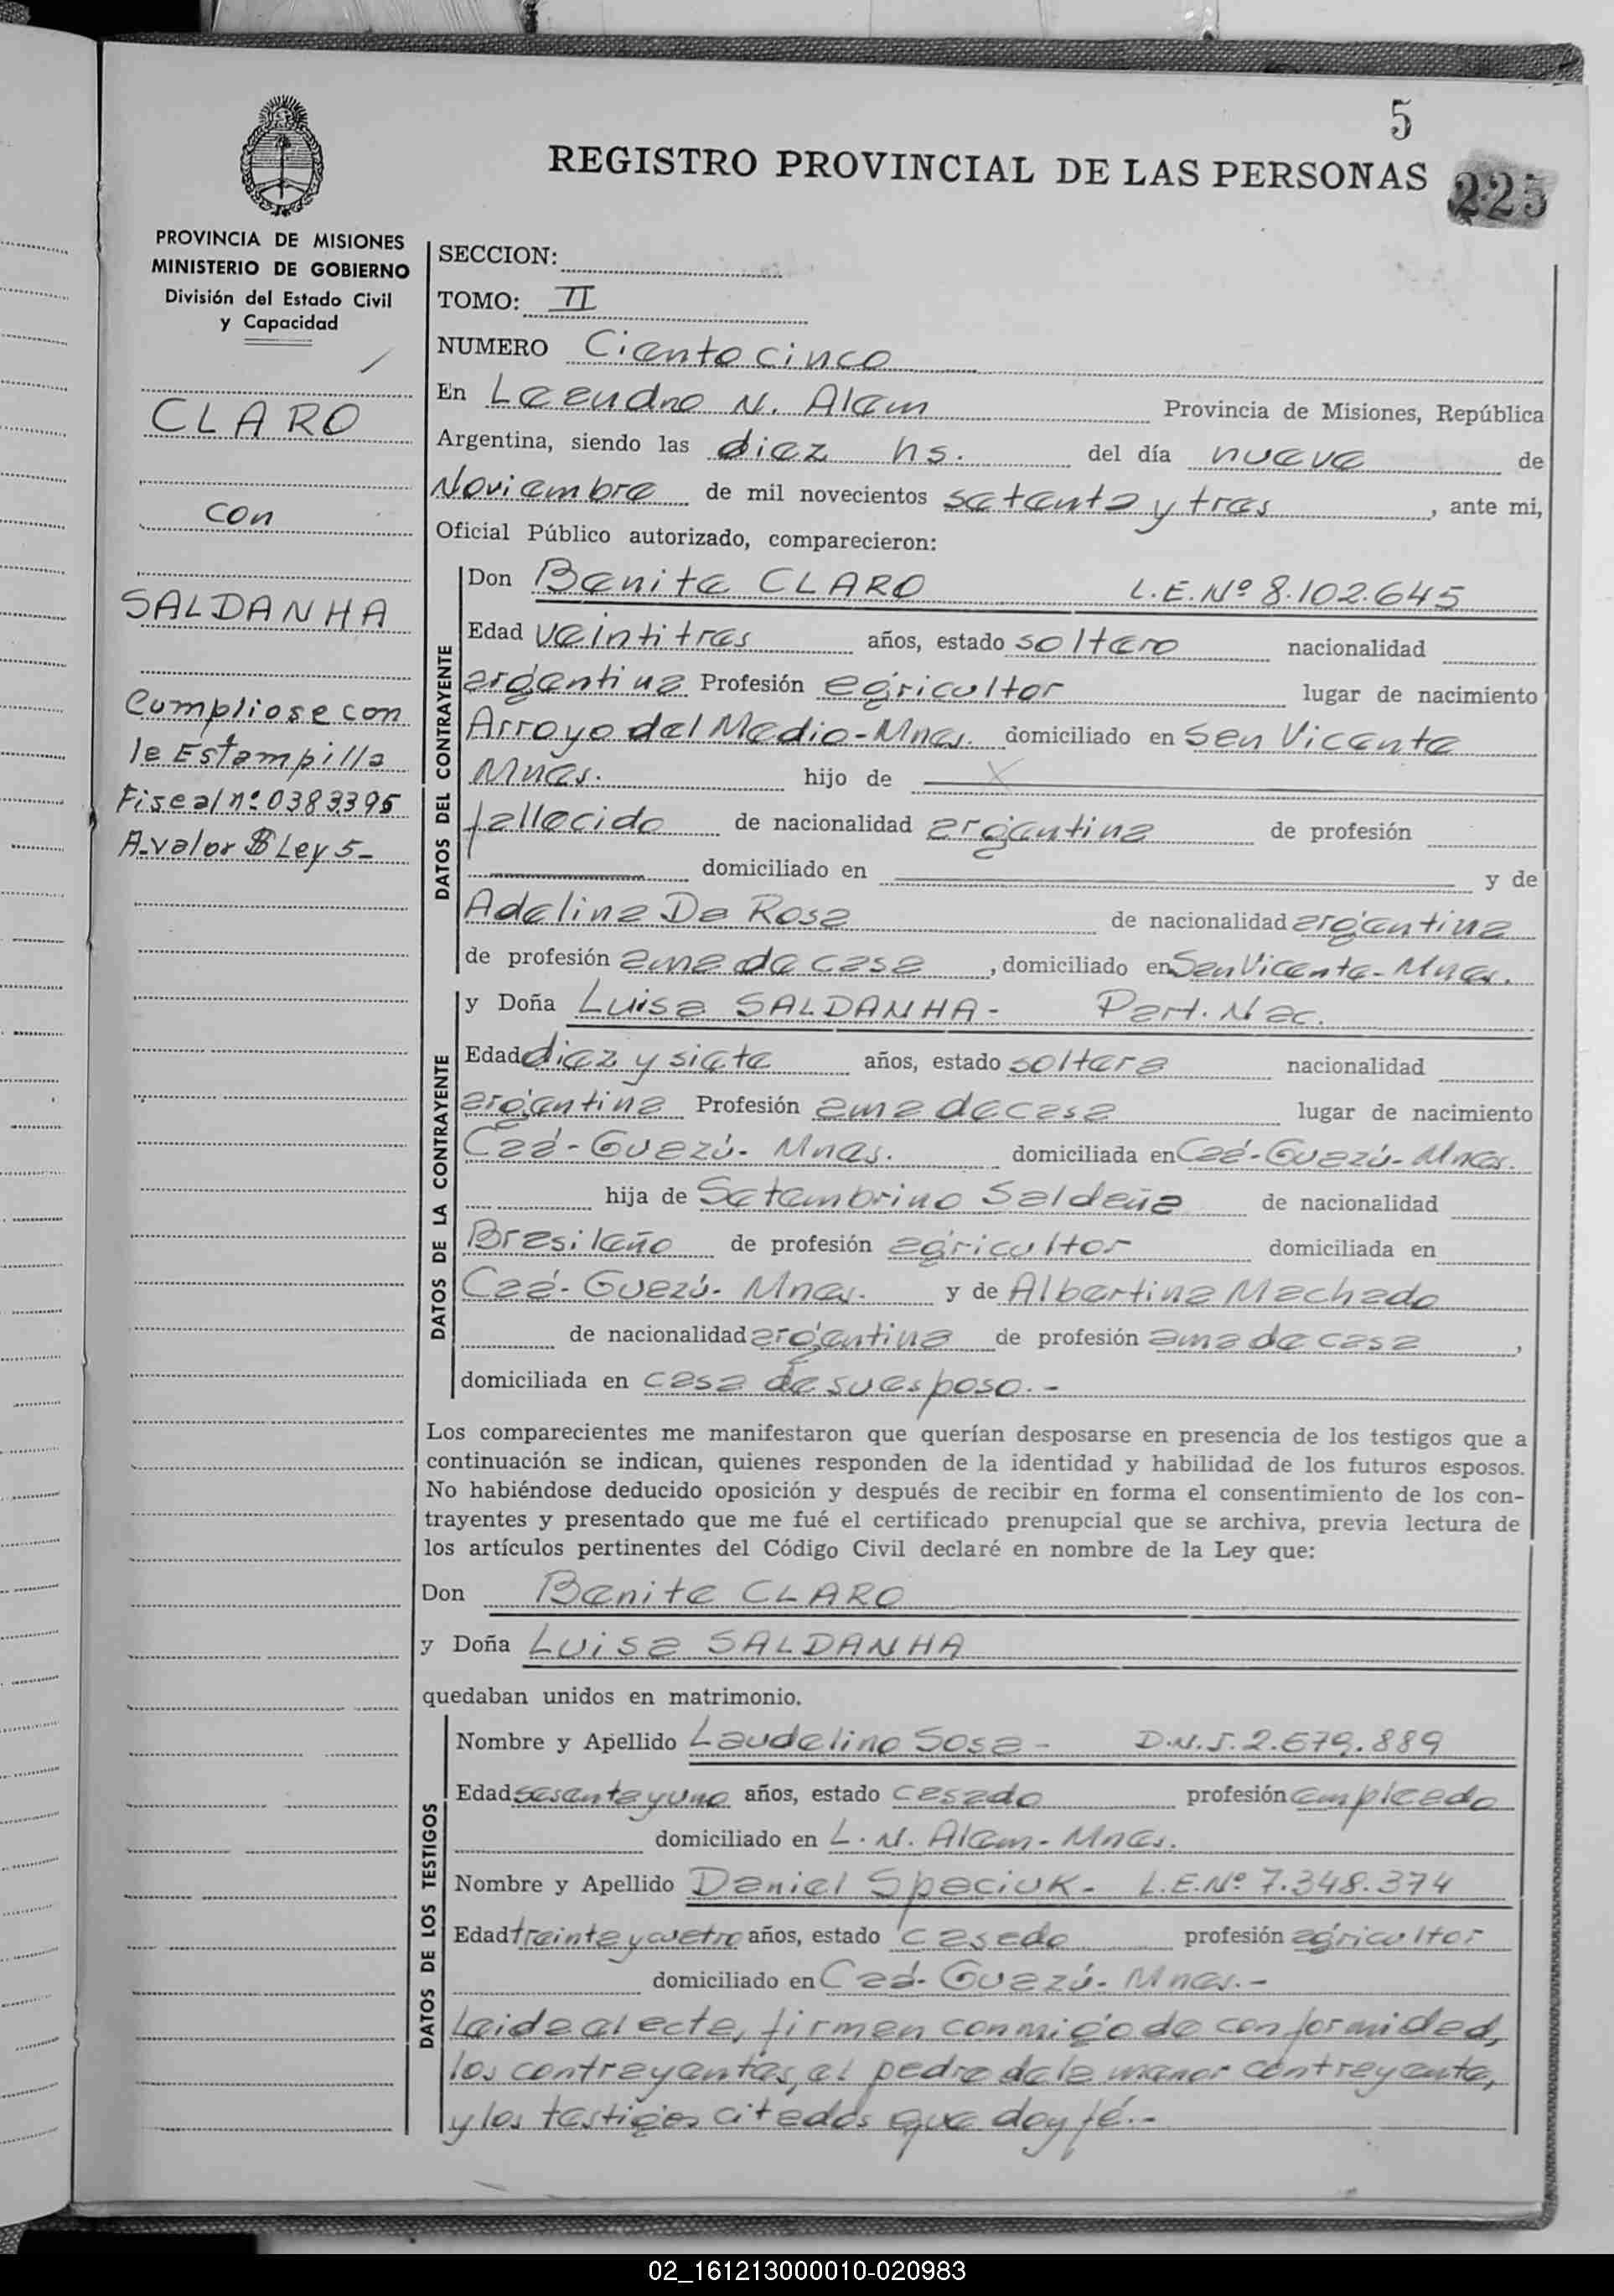 5
REGISTRO PROVINCIAL DE LAS PERSONAS
225
PROVINCIA DE MISIONES
MINISTERIO DE GOBIERNO
División del Estado Civil
y Capacidad
CLARO
con
SALDANHA
Cumpliose con
la Estampilla
Fiscal nº 0383395
A-valor $ Ley 5-
SECCION:
TOMO: II
NUMERO Ciento cinco
En Leandro N. Alem Provincia de Misiones, República
Argentina, siendo las diez hs. del día nueve de
Noviembre de mil novecientos setenta y tres, ante mi,
Oficial Público autorizado, comparecieron:
DATOS DEL CONTRAYENTE
Don CLARO L.E.Nº 8.102.645
Edad veintitres años, estado soltero nacionalidad
argentina Profesión agricultor lugar de nacimiento
Arroyo del Medio-Mnes. domiciliado en San Vicente
Mnes. hijo de
fallecido de nacionalidad argentina de profesión
domiciliado en y de
Adelina De Rosa de nacionalidad argentina
de profesión ama de casa, domiciliado en San Vicente-Mnes.
DATOS DE LA CONTRAYENTE
y Doña Luisa SALDANHA- Part. Nac.
Edad diez y siete años, estado soltera nacionalidad
argentina Profesión ama de casa lugar de nacimiento
Caá-Guazú- Mnes. domiciliada en Caá-Guazú-Mnes.
hija de Setembrino Saldaña de nacionalidad
Brasileño de profesión agricultor domiciliada en
Caá-Guazú- Mnes. y de Albertina Machado
de nacionalidad argentina de profesión ama de casa,
domiciliada en casa de su esposo.-
Los comparecientes me manifestaron que querían desposarse en presencia de los testigos que a
continuación se indican, quienes responden de la identidad y habilidad de los futuros esposos.
No habiéndose deducido oposición y después de recibir en forma el consentimiento de los con-
trayentes y presentado que me fué el certificado prenupcial que se archiva, previa lectura de
los artículos pertinentes del Código Civil declaré en nombre de la Ley que:
Don CLARO
y Doña Luisa SALDANHA
quedaban unidos en matrimonio.
DATOS DE LOS TESTIGOS
Nombre y Apellido Laudelino Sosa- D.N.I. 2.679.889
Edad sesenta y uno años, estado casado profesión empleado
domiciliado en L. N. Alem-Mnes.
Nombre y Apellido Daniel Spaciuk- L.E.Nº 7.348.374
Edad treinta y cuatro años, estado casado profesión agricultor
domiciliado en Caá-Guazú- Mnes.-
Leida el acta, firman conmigo de conformidad,
los contrayentes, el padre de la menor contrayente,
y los testigos citados que doy fé.-
02_161213000010-020983